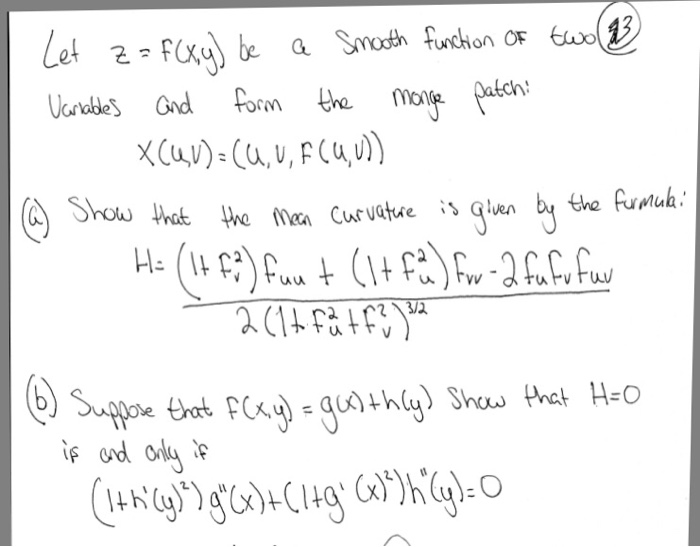 Let z = f(x,y) be a Smooth function OF two
Variables and form the monge patch:
X(u,v) = (u, v, F(u,v))
(a) Show that the Mean Curvature is given by the furmula:
H = (1 + f_v^2) f_uu + (1 + f_u^2) f_vv - 2 f_u f_v f_uv
2 (1 + f_u^2 + f_v^2)^3/2
(b) Suppose that F(x,y) = g(x) + h(y) Show that H=0
if and only if
(1 + h'(y)^2) g''(x) + (1 + g'(x)^2) h''(y) = 0